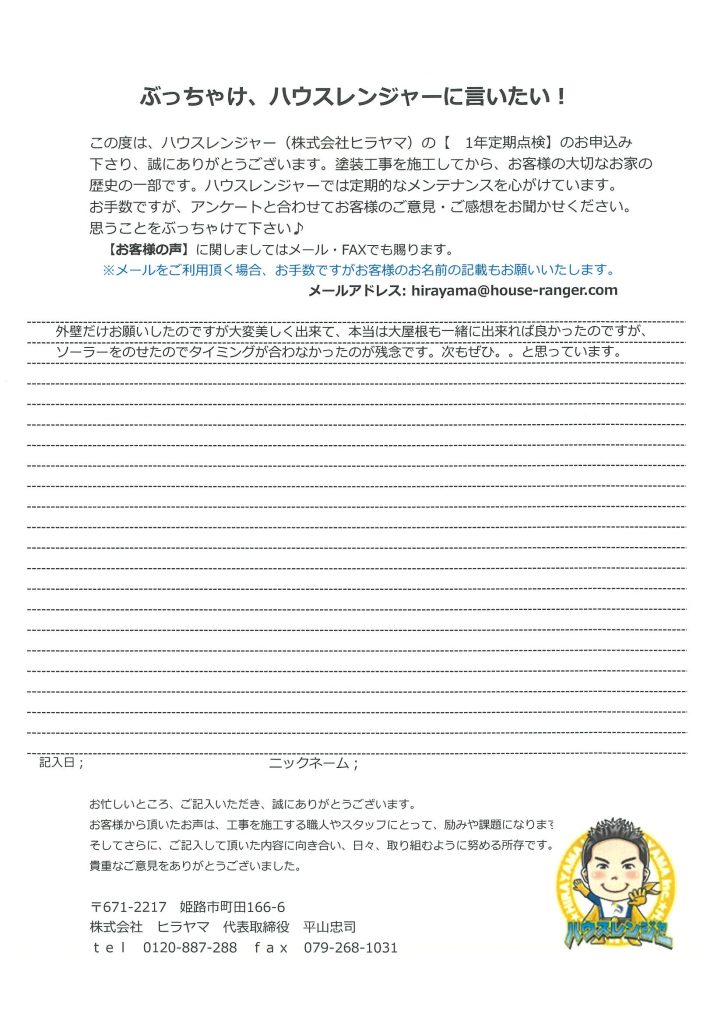 ぶっちゃけ、ハウスレンジャーに言いたい！
この度は、ハウスレンジャー（株式会社ヒラヤマ）の【　1年定期点検】のお申込み
下さり、誠にありがとうございます。塗装工事を施工してから、お客様の大切なお家の
歴史の一部です。ハウスレンジャーでは定期的なメンテナンスを心がけています。
お手数ですが、アンケートと合わせてお客様のご意見・ご感想をお聞かせください。
思うことをぶっちゃけて下さい♪
【お客様の声】に関しましてはメール・FAXでも賜ります。
※メールをご利用頂く場合、お手数ですがお客様のお名前の記載もお願いいたします。
メールアドレス: hirayama@house-ranger.com
外壁だけお願いしたのですが大変美しく出来て、本当は大屋根も一緒に出来れば良かったのですが、
ソーラーをのせたのでタイミングが合わなかったのが残念です。次もぜひ。。と思っています。
記入日；　ニックネーム；
お忙しいところ、ご記入いただき、誠にありがとうございます。
お客様から頂いたお声は、工事を施工する職人やスタッフにとって、励みや課題になります
そしてさらに、ご記入して頂いた内容に向き合い、日々、取り組むように努める所存です。
貴重なご意見をありがとうございました。
HIRAYAMA
ハウスレンジャー
〒671-2217　姫路市町田166-6
株式会社　ヒラヤマ　代表取締役　平山忠司
ｔｅｌ　0120-887-288　ｆａｘ　079-268-1031